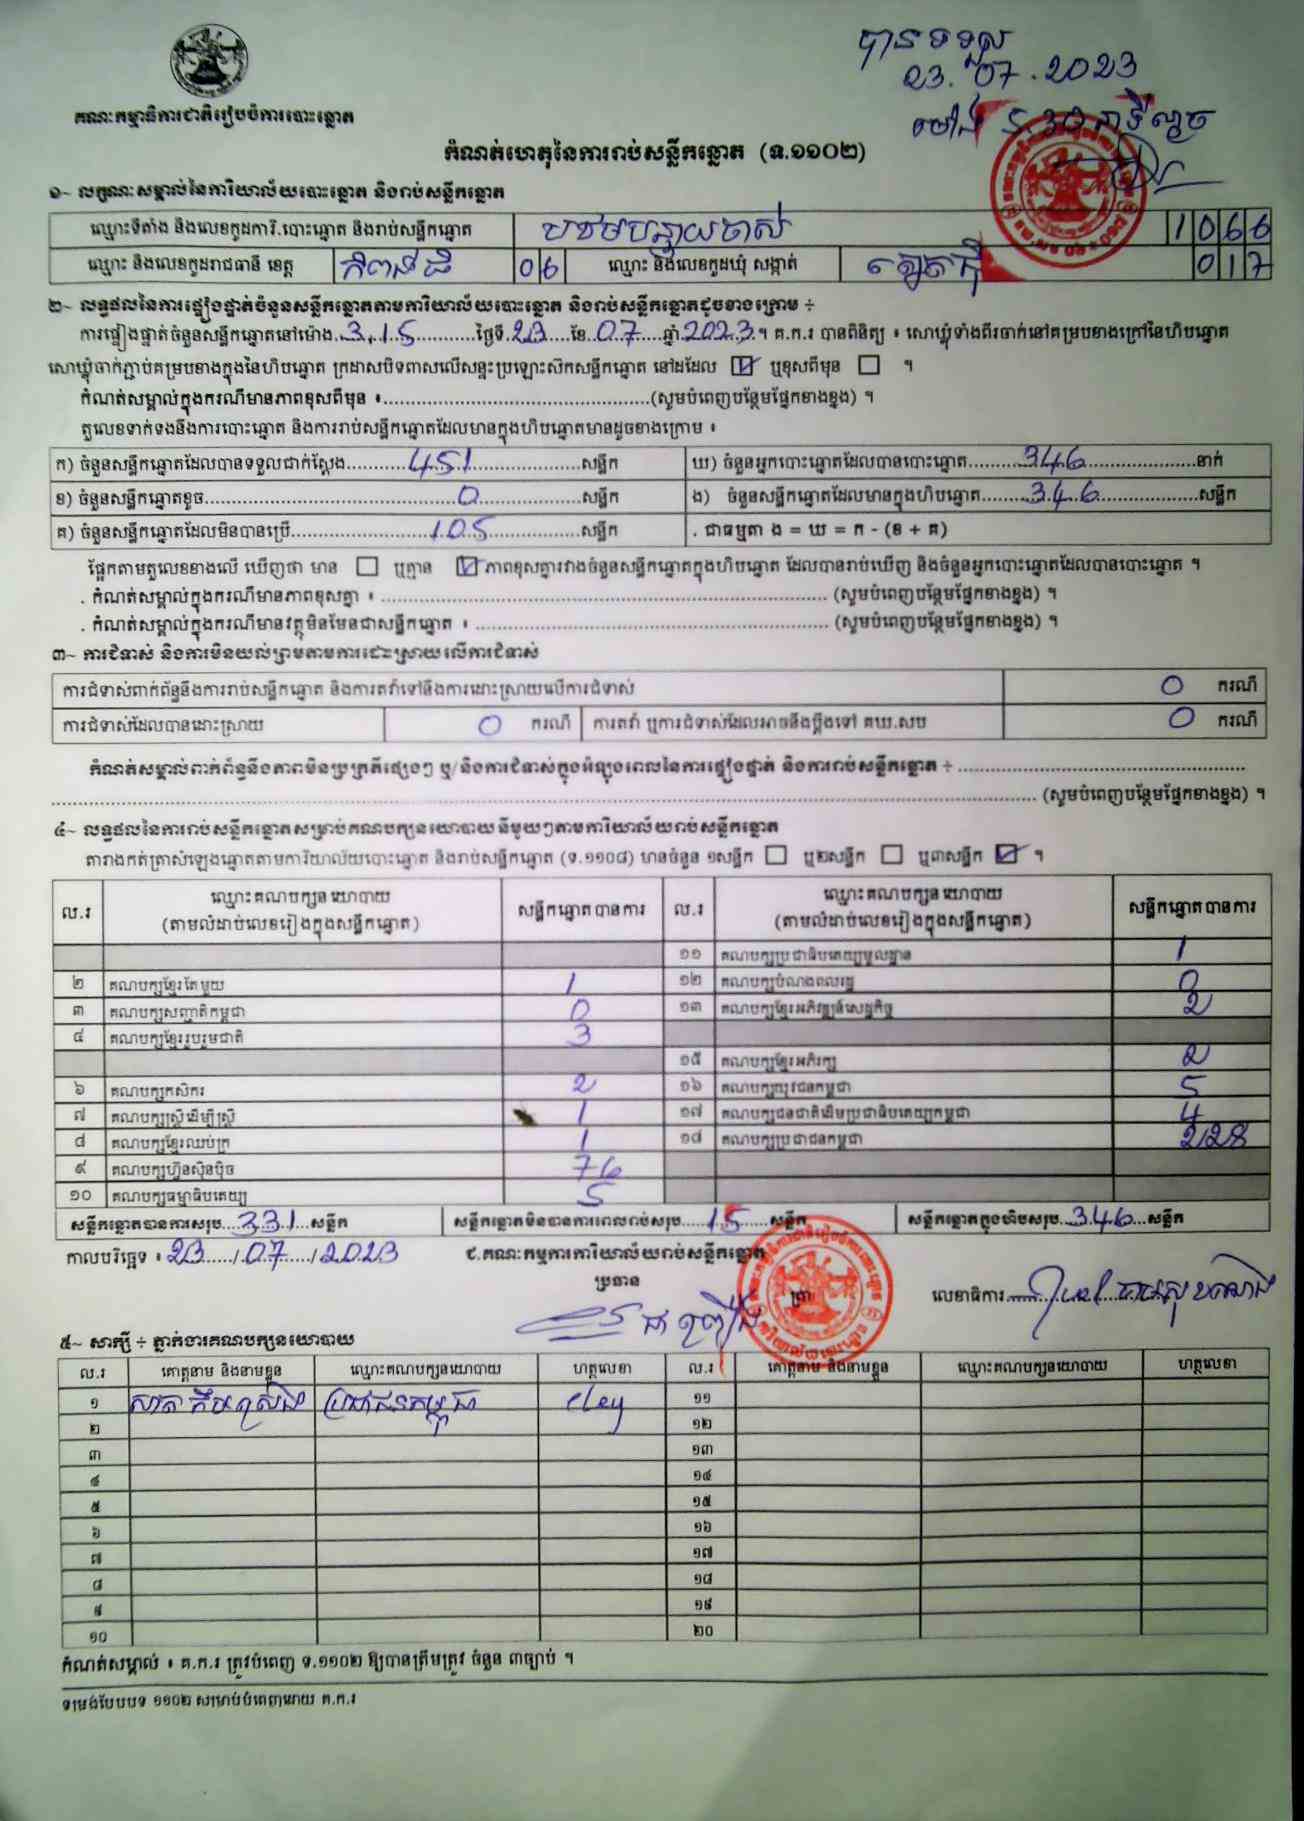 បានទទួល
23.07.2023
ម៉ោង 5:30 នាទីល្ងាច
គណៈកម្មាធិការជាតិរៀបចំការបោះឆ្នោត
កំណត់ហេតុនៃការរាប់សន្លឹកឆ្នោត (ទ.១១០២)
១~ លក្ខណៈសម្គាល់នៃការិយាល័យបោះឆ្នោត និងរាប់សន្លឹកឆ្នោត
ឈ្មោះទីតាំង និងលេខកូដការិ.បោះឆ្នោត និងរាប់សន្លឹកឆ្នោត 1066
ឈ្មោះ និងលេខកូដរាជធានី ខេត្ត កំពង់ធំ 06 ឈ្មោះ និងលេខកូដឃុំ សង្កាត់ 017
២~ លទ្ធផលនៃការផ្ទៀងផ្ទាត់ចំនួនសន្លឹកឆ្នោតតាមការិយាល័យបោះឆ្នោត និងរាប់សន្លឹកឆ្នោតដូចខាងក្រោម ÷
ការផ្ទៀងផ្ទាត់ចំនួនសន្លឹកឆ្នោតនៅម៉ោង 3:15 ថ្ងៃទី 23 ខែ 07 ឆ្នាំ 2023។ គ.ក.រ បានពិនិត្យ ៖ សោឃ្លុំទាំងពីរចាក់នៅគម្របខាងក្រៅនៃហិបឆ្នោត
សោឃ្លុំចាក់ភ្ជាប់គម្របខាងក្នុងនៃហិបឆ្នោត ក្រដាសបិទពាសលើសន្ទះប្រឡោះស៊កសន្លឹកឆ្នោត នៅដដែល ☑ ឬខុសពីមុន ☐ ។
កំណត់សម្គាល់ក្នុងករណីមានភាពខុសពីមុន ៖ (សូមបំពេញបន្ថែមផ្នែកខាងខ្នង) ។
តួលេខទាក់ទងនឹងការបោះឆ្នោត និងការរាប់សន្លឹកឆ្នោតដែលមានក្នុងហិបឆ្នោតមានដូចខាងក្រោម ៖
ក) ចំនួនសន្លឹកឆ្នោតដែលបានទទួលជាក់ស្តែង 451 សន្លឹក ឃ) ចំនួនអ្នកបោះឆ្នោតដែលបានបោះឆ្នោត 346 នាក់
ខ) ចំនួនសន្លឹកឆ្នោតខូច 0 សន្លឹក ង) ចំនួនសន្លឹកឆ្នោតដែលមានក្នុងហិបឆ្នោត 346 សន្លឹក
គ) ចំនួនសន្លឹកឆ្នោតដែលមិនបានប្រើ 105 សន្លឹក . ជាធម្មតា ង = ឃ = ក - (ខ + គ)
ផ្អែកតាមតួលេខខាងលើ ឃើញថា មាន ☐ ឬគ្មាន ☑ ភាពខុសគ្នារវាងចំនួនសន្លឹកឆ្នោតក្នុងហិបឆ្នោត ដែលបានរាប់ឃើញ និងចំនួនអ្នកបោះឆ្នោតដែលបានបោះឆ្នោត ។
. កំណត់សម្គាល់ក្នុងករណីមានភាពខុសគ្នា ៖ (សូមបំពេញបន្ថែមផ្នែកខាងខ្នង) ។
. កំណត់សម្គាល់ក្នុងករណីមានវត្ថុមិនមែនជាសន្លឹកឆ្នោត ៖ (សូមបំពេញបន្ថែមផ្នែកខាងខ្នង) ។
៣~ ការជំទាស់ និងការមិនយល់ព្រមតាមការដោះស្រាយលើការជំទាស់
ការជំទាស់ពាក់ព័ន្ធនឹងការរាប់សន្លឹកឆ្នោត និងការតវ៉ាទៅនឹងការដោះស្រាយលើការជំទាស់ 0 ករណី
ការជំទាស់ដែលបានដោះស្រាយ 0 ករណី ការតវ៉ា ឬការជំទាស់ដែលអាចនឹងប្តឹងទៅ គឃ.សប 0 ករណី
កំណត់សម្គាល់ពាក់ព័ន្ធនឹងភាពមិនប្រក្រតីផ្សេងៗ ឬ/និងការជំទាស់ក្នុងអំឡុងពេលនៃការផ្ទៀងផ្ទាត់ និងការរាប់សន្លឹកឆ្នោត ÷
(សូមបំពេញបន្ថែមផ្នែកខាងខ្នង) ។
៤~ លទ្ធផលនៃការរាប់សន្លឹកឆ្នោតសម្រាប់គណបក្សនយោបាយនីមួយៗតាមការិយាល័យរាប់សន្លឹកឆ្នោត
តារាងកត់ត្រាសំឡេងឆ្នោតតាមការិយាល័យបោះឆ្នោត និងរាប់សន្លឹកឆ្នោត (ទ.១១០៨) មានចំនួន ១សន្លឹក ☐ ឬ២សន្លឹក ☐ ឬ៣សន្លឹក ☑ ។
ល.រ ឈ្មោះគណបក្សនយោបាយ (តាមលំដាប់លេខរៀងក្នុងសន្លឹកឆ្នោត) សន្លឹកឆ្នោតបានការ ល.រ ឈ្មោះគណបក្សនយោបាយ (តាមលំដាប់លេខរៀងក្នុងសន្លឹកឆ្នោត) សន្លឹកឆ្នោតបានការ
១១ គណបក្សប្រជាធិបតេយ្យមូលដ្ឋាន 1
២ គណបក្សខ្មែរតែមួយ 1 ១២ គណបក្សបំណងពលរដ្ឋ 0
៣ គណបក្សសញ្ជាតិកម្ពុជា 0 ១៣ គណបក្សខ្មែរអភិវឌ្ឍន៍សេដ្ឋកិច្ច 2
៤ គណបក្សខ្មែររួបរួមជាតិ 3
១៥ គណបក្សខ្មែរអភិរក្ស 2
៦ គណបក្សកសិករ 2 ១៦ គណបក្សយុវជនកម្ពុជា 5
៧ គណបក្សស្ត្រីដើម្បីស្ត្រី 1 ១៧ គណបក្សជនជាតិដើមប្រជាធិបតេយ្យកម្ពុជា 4
៨ គណបក្សខ្មែរឈប់ក្រ 1 ១៨ គណបក្សប្រជាជនកម្ពុជា 228
៩ គណបក្សហ៊្វុនស៊ិនប៉ិច 76
១០ គណបក្សធម្មាធិបតេយ្យ 5
សន្លឹកឆ្នោតបានការសរុប 331 សន្លឹក សន្លឹកឆ្នោតមិនបានការពេលរាប់សរុប 15 សន្លឹក សន្លឹកឆ្នោតក្នុងហិបសរុប 346 សន្លឹក
កាលបរិច្ឆេទ ៖ 23/07/2023 ជ.គណៈកម្មការការិយាល័យរាប់សន្លឹកឆ្នោត
ប្រធាន ត្រា លេខាធិការ
៥~ សាក្សី ÷ ភ្នាក់ងារគណបក្សនយោបាយ
ល.រ គោត្តនាម និងនាមខ្លួន ឈ្មោះគណបក្សនយោបាយ ហត្ថលេខា ល.រ គោត្តនាម និងនាមខ្លួន ឈ្មោះគណបក្សនយោបាយ ហត្ថលេខា
១ ប្រជាជនកម្ពុជា ១១
២ ១២
៣ ១៣
៤ ១៤
៥ ១៥
៦ ១៦
៧ ១៧
៨ ១៨
៩ ១៩
១០ ២០
កំណត់សម្គាល់ ៖ គ.ក.រ ត្រូវបំពេញ ទ.១១០២ ឱ្យបានត្រឹមត្រូវ ចំនួន ៣ច្បាប់ ។
ទម្រង់បែបបទ ១១០២ សម្រាប់បំពេញដោយ គ.ក.រ